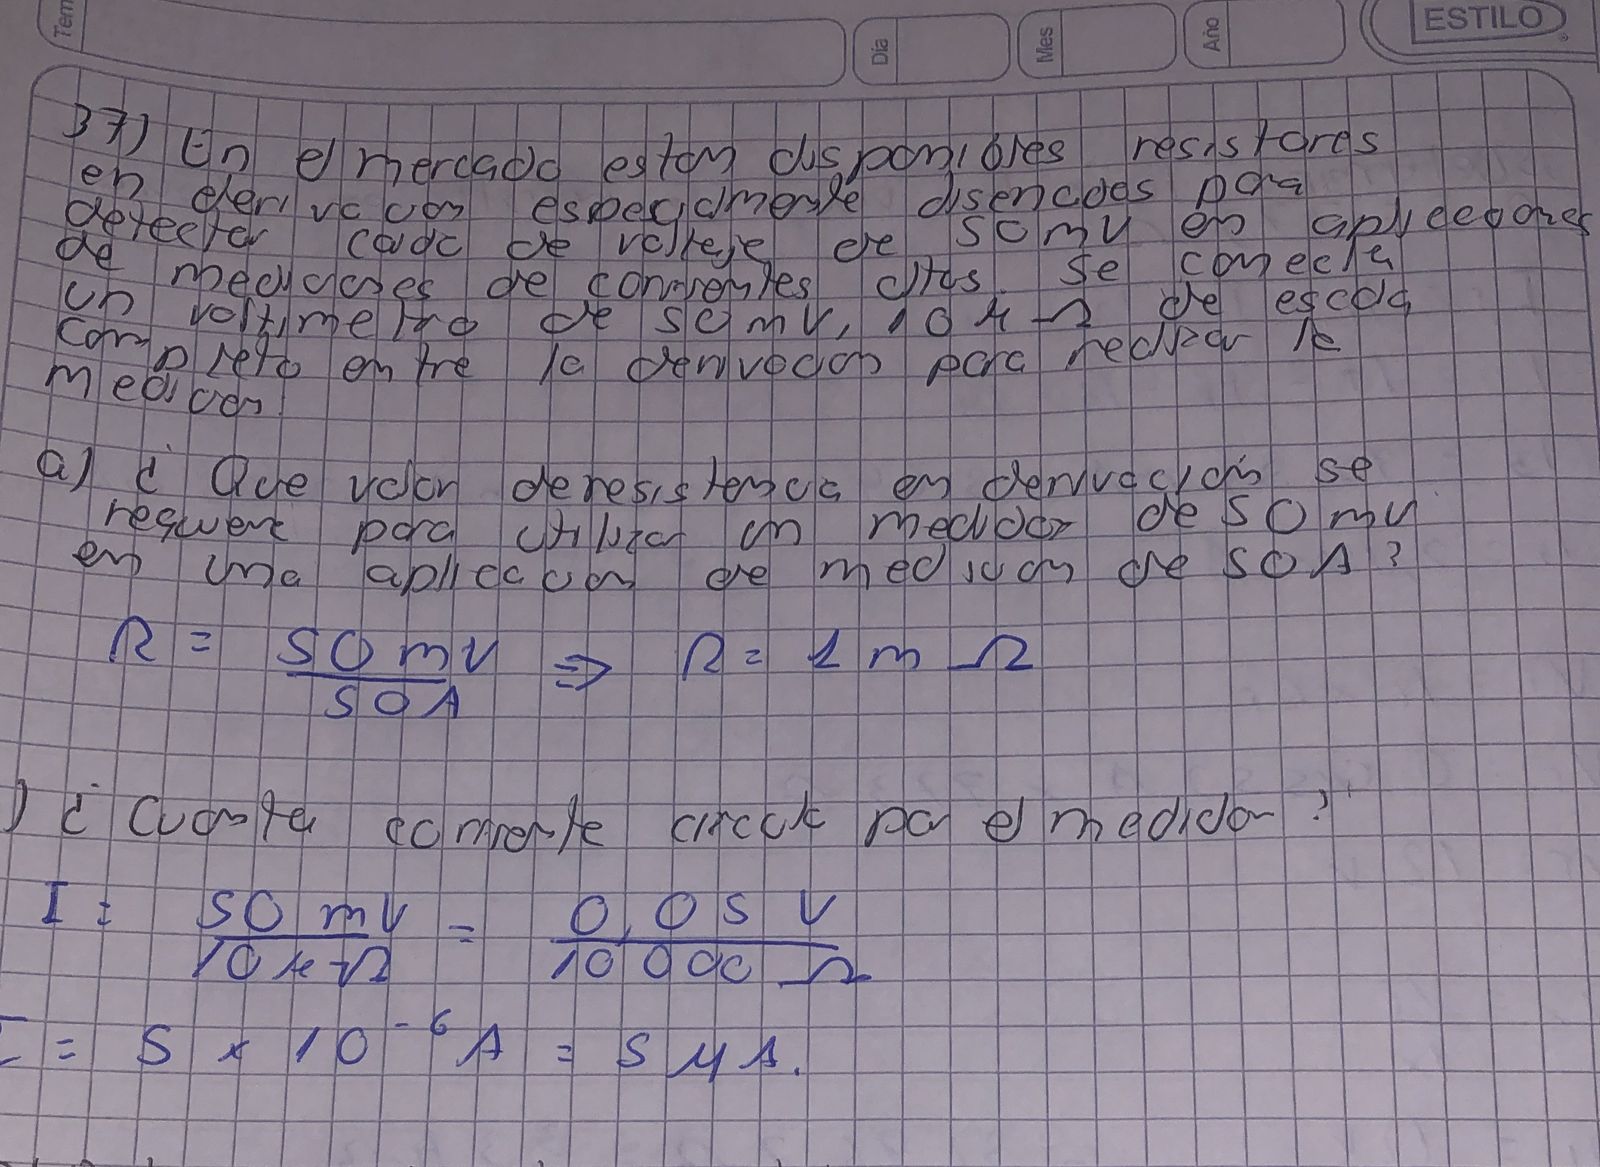 Tem
Día
Mes
Año
ESTILO
37) En el mercado estan disponibles resistores
en derivacion especialmente diseñcdoes para
detectar caida de voltaje de 50 mV en aplicaciones
de mediciones de corrientes altas. Se conecta
un voltimetro de 50 mV, 10 k Ω de escala
completa entre la derivacion para realizar la
medicion.
a) ¿ Que valor de resistencia en derivación se
requiere para utilizar un medidor de 50 mV
en una aplicacion de medicion de 50 A?
R = 50 mV / 50 A ⇒ R = 1 m Ω
) ¿ Cuanta corriente circula por el medidor?
I = 50 mV / 10 k Ω = 0,05 V / 10 000 Ω
I = 5 x 10⁻⁶ A = 5 μA.